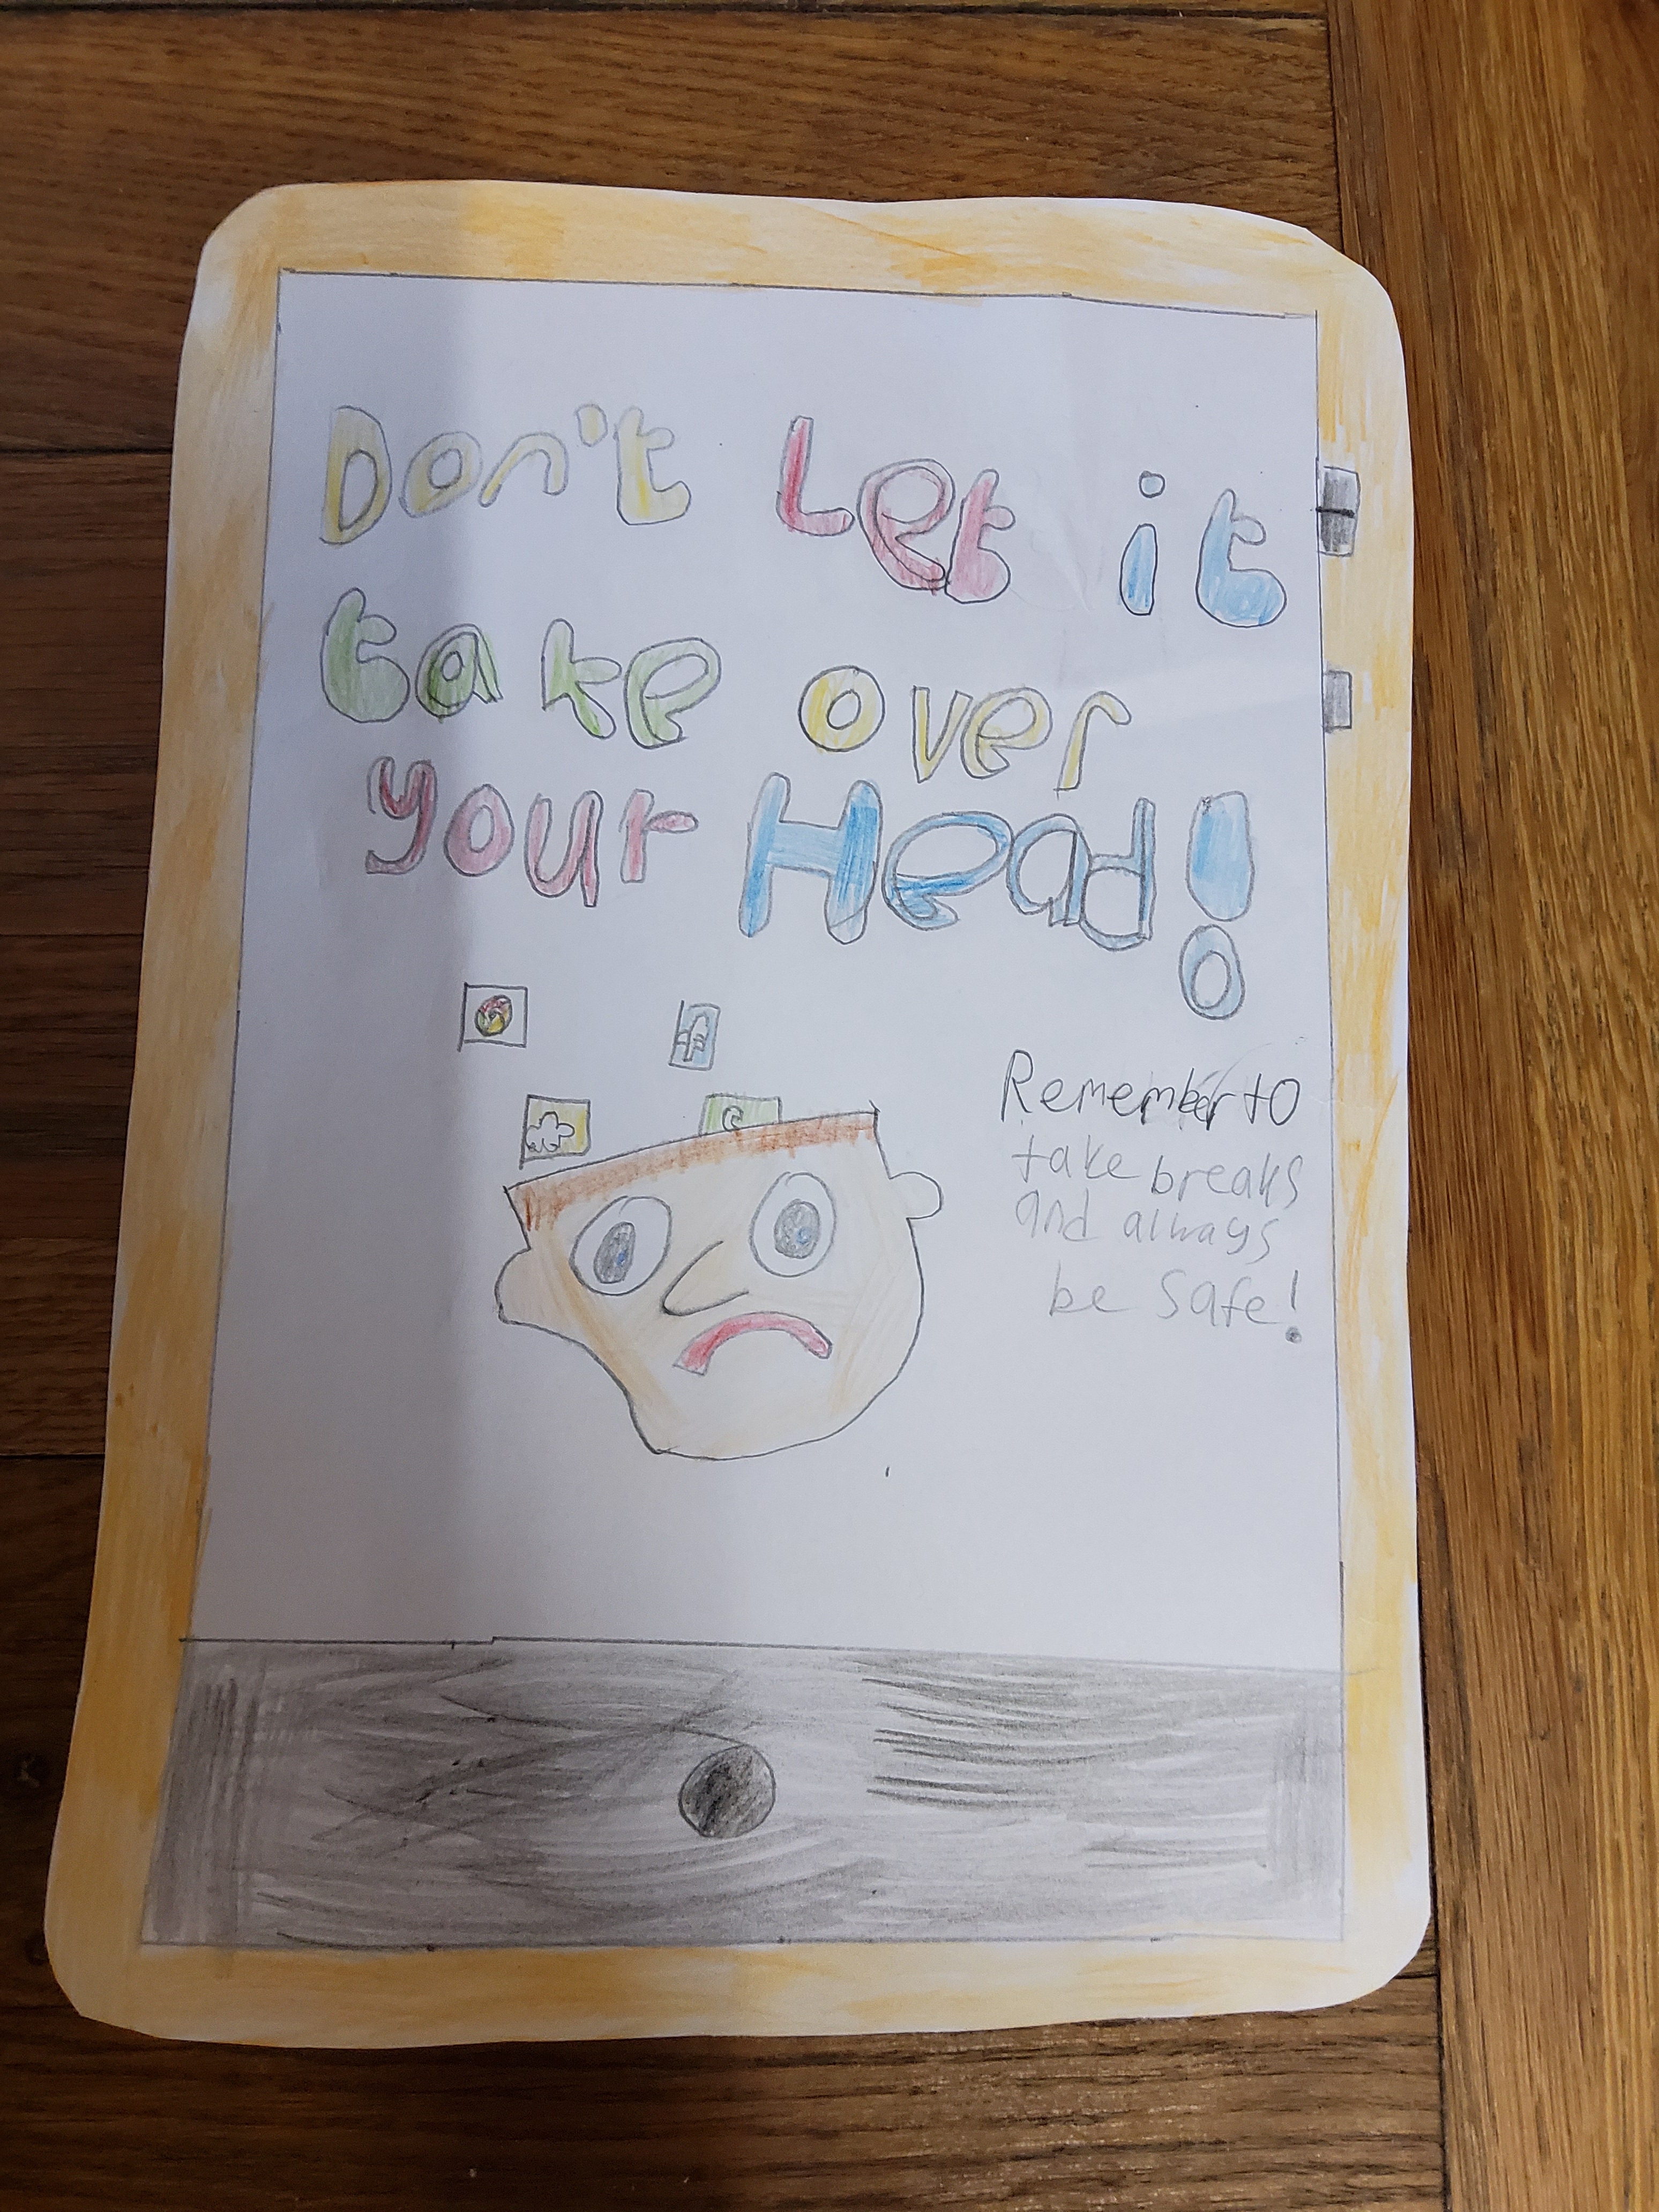 Don't Let it
take over
your Head!
Remember to
take breaks
and always
be Safe!